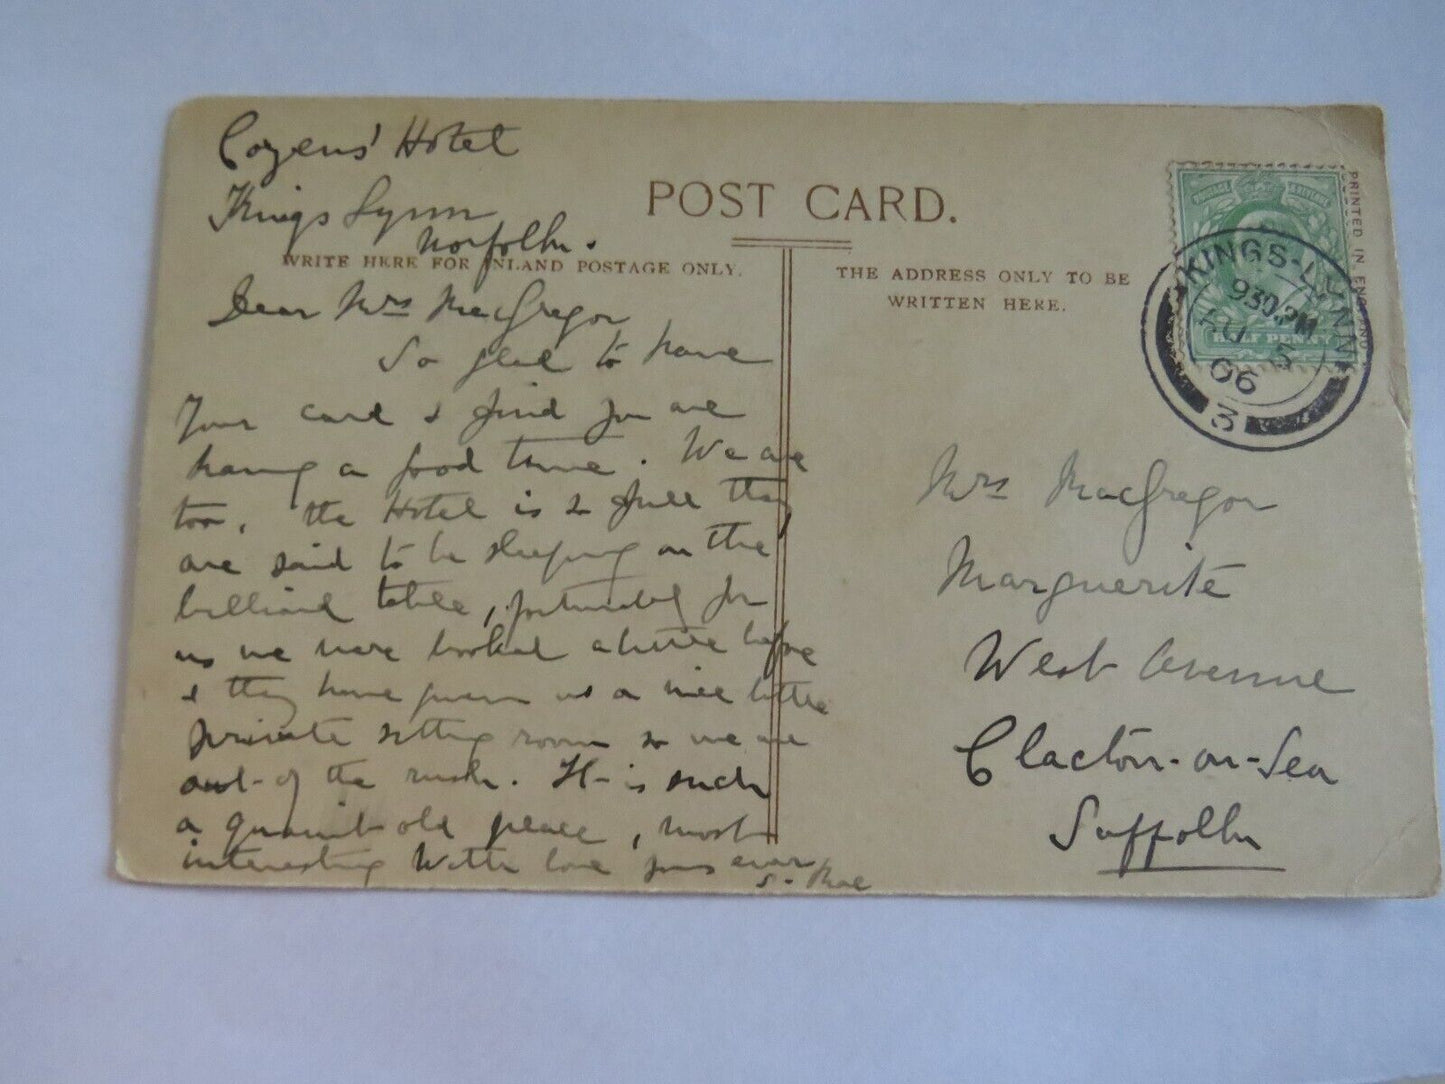 Cozens' Hotel
Kings Lynn
Norfolk.
POST CARD.
WRITE HERE FOR INLAND POSTAGE ONLY.
THE ADDRESS ONLY TO BE
WRITTEN HERE.
PRINTED IN ENGLAND
KINGS-LYNN
9.30.PM
AU 5
06
3
HALF PENNY
Dear Mrs MacGregor
So glad to have
Your card & find you are
having a good time. We are
too, the Hotel is so full they
are said to be sleeping on the
billiard table, fortunately for
us we were booked a little before
& they have given us a nice little
private sitting room so we are
out of the rush. It is such
a quaint old place, most
interesting With love yours ever
S. Rae
Mrs MacGregor
Marguerite
West Avenue
Clacton-on-Sea
Suffolk